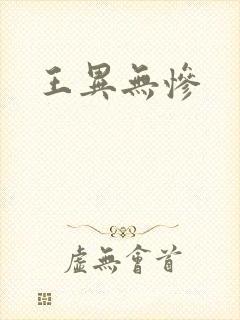 王異無慘
虛無會首